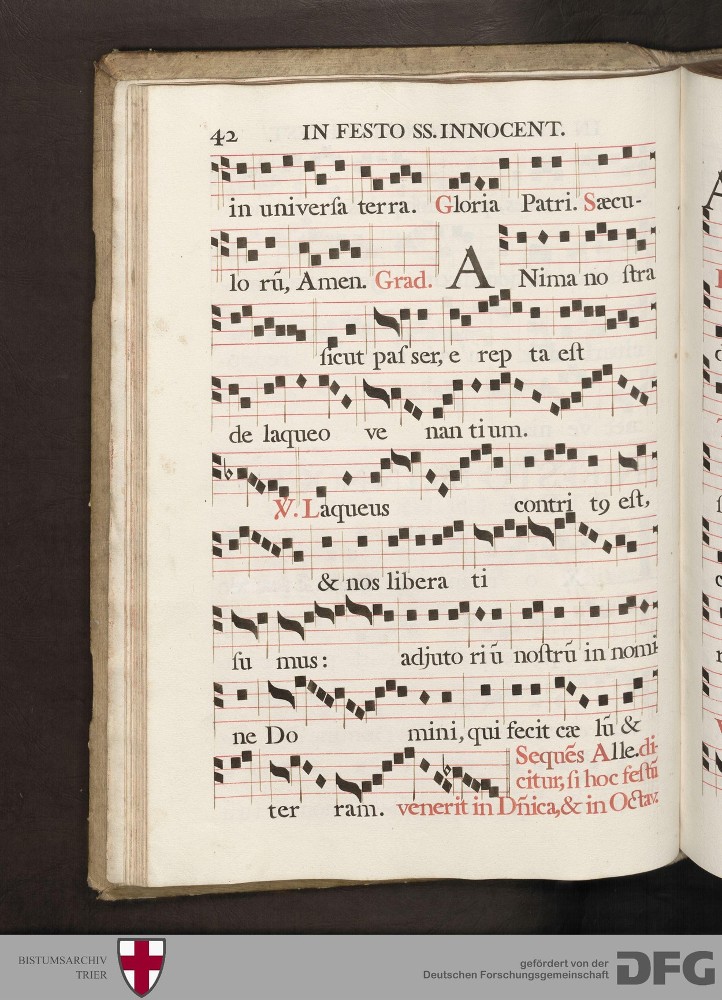 42 IN FESTO SS. INNOCENT.
in univerſa terra. Gloria Patri. Sæcu-
lo rũ, Amen. Grad. A Nima no ſtra
ſicut paſ ser, e rep ta eſt
de laqueo ve nan tium.
℣. Laqueus contri t9 eſt,
& nos libera ti
ſu mus: adjuto ri ũ noſtrũ in nomi
ne Do mini, qui fecit cæ lũ &
Sequẽs Alle. di-
citur, ſi hoc feſtũ
ter ram. venerit in Dñica, & in Octav.
BISTUMSARCHIV
TRIER
gefördert von der
Deutschen Forschungsgemeinschaft
DFG